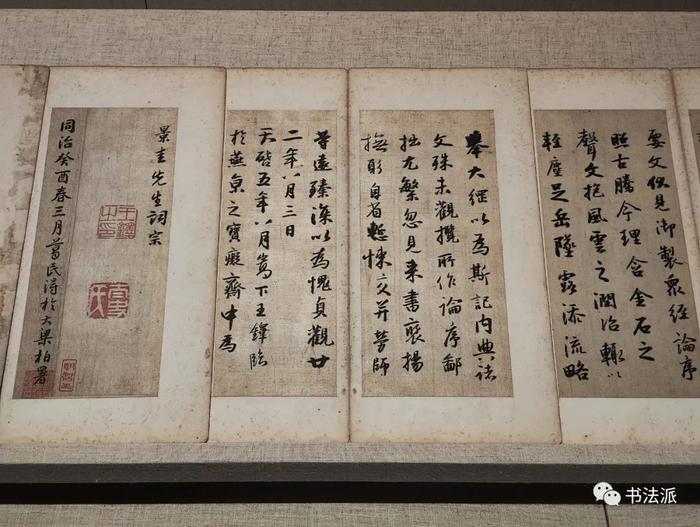 要文伏見御製眾經論序
照古騰今理含金石之
聲文抱風雲之潤治輒以
輕塵足岳墜露添流略
舉大綱以為斯記內典諸
文殊未觀攬所作論序鄙
拙尤繁忽見來書褒揚
撫躬自省慙悚交并勞師
等遠臻深以為愧貞觀廿
二年八月三日
天啓五年八月嵩下王鐸臨
於燕京之寶齋中為
景圭先生詞宗
王鐸之印
同治癸酉春三月葛民得於大梁柏署
书法派